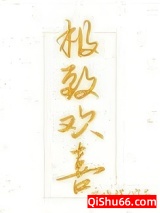 极致欢喜
奇书网
QiShu66.com